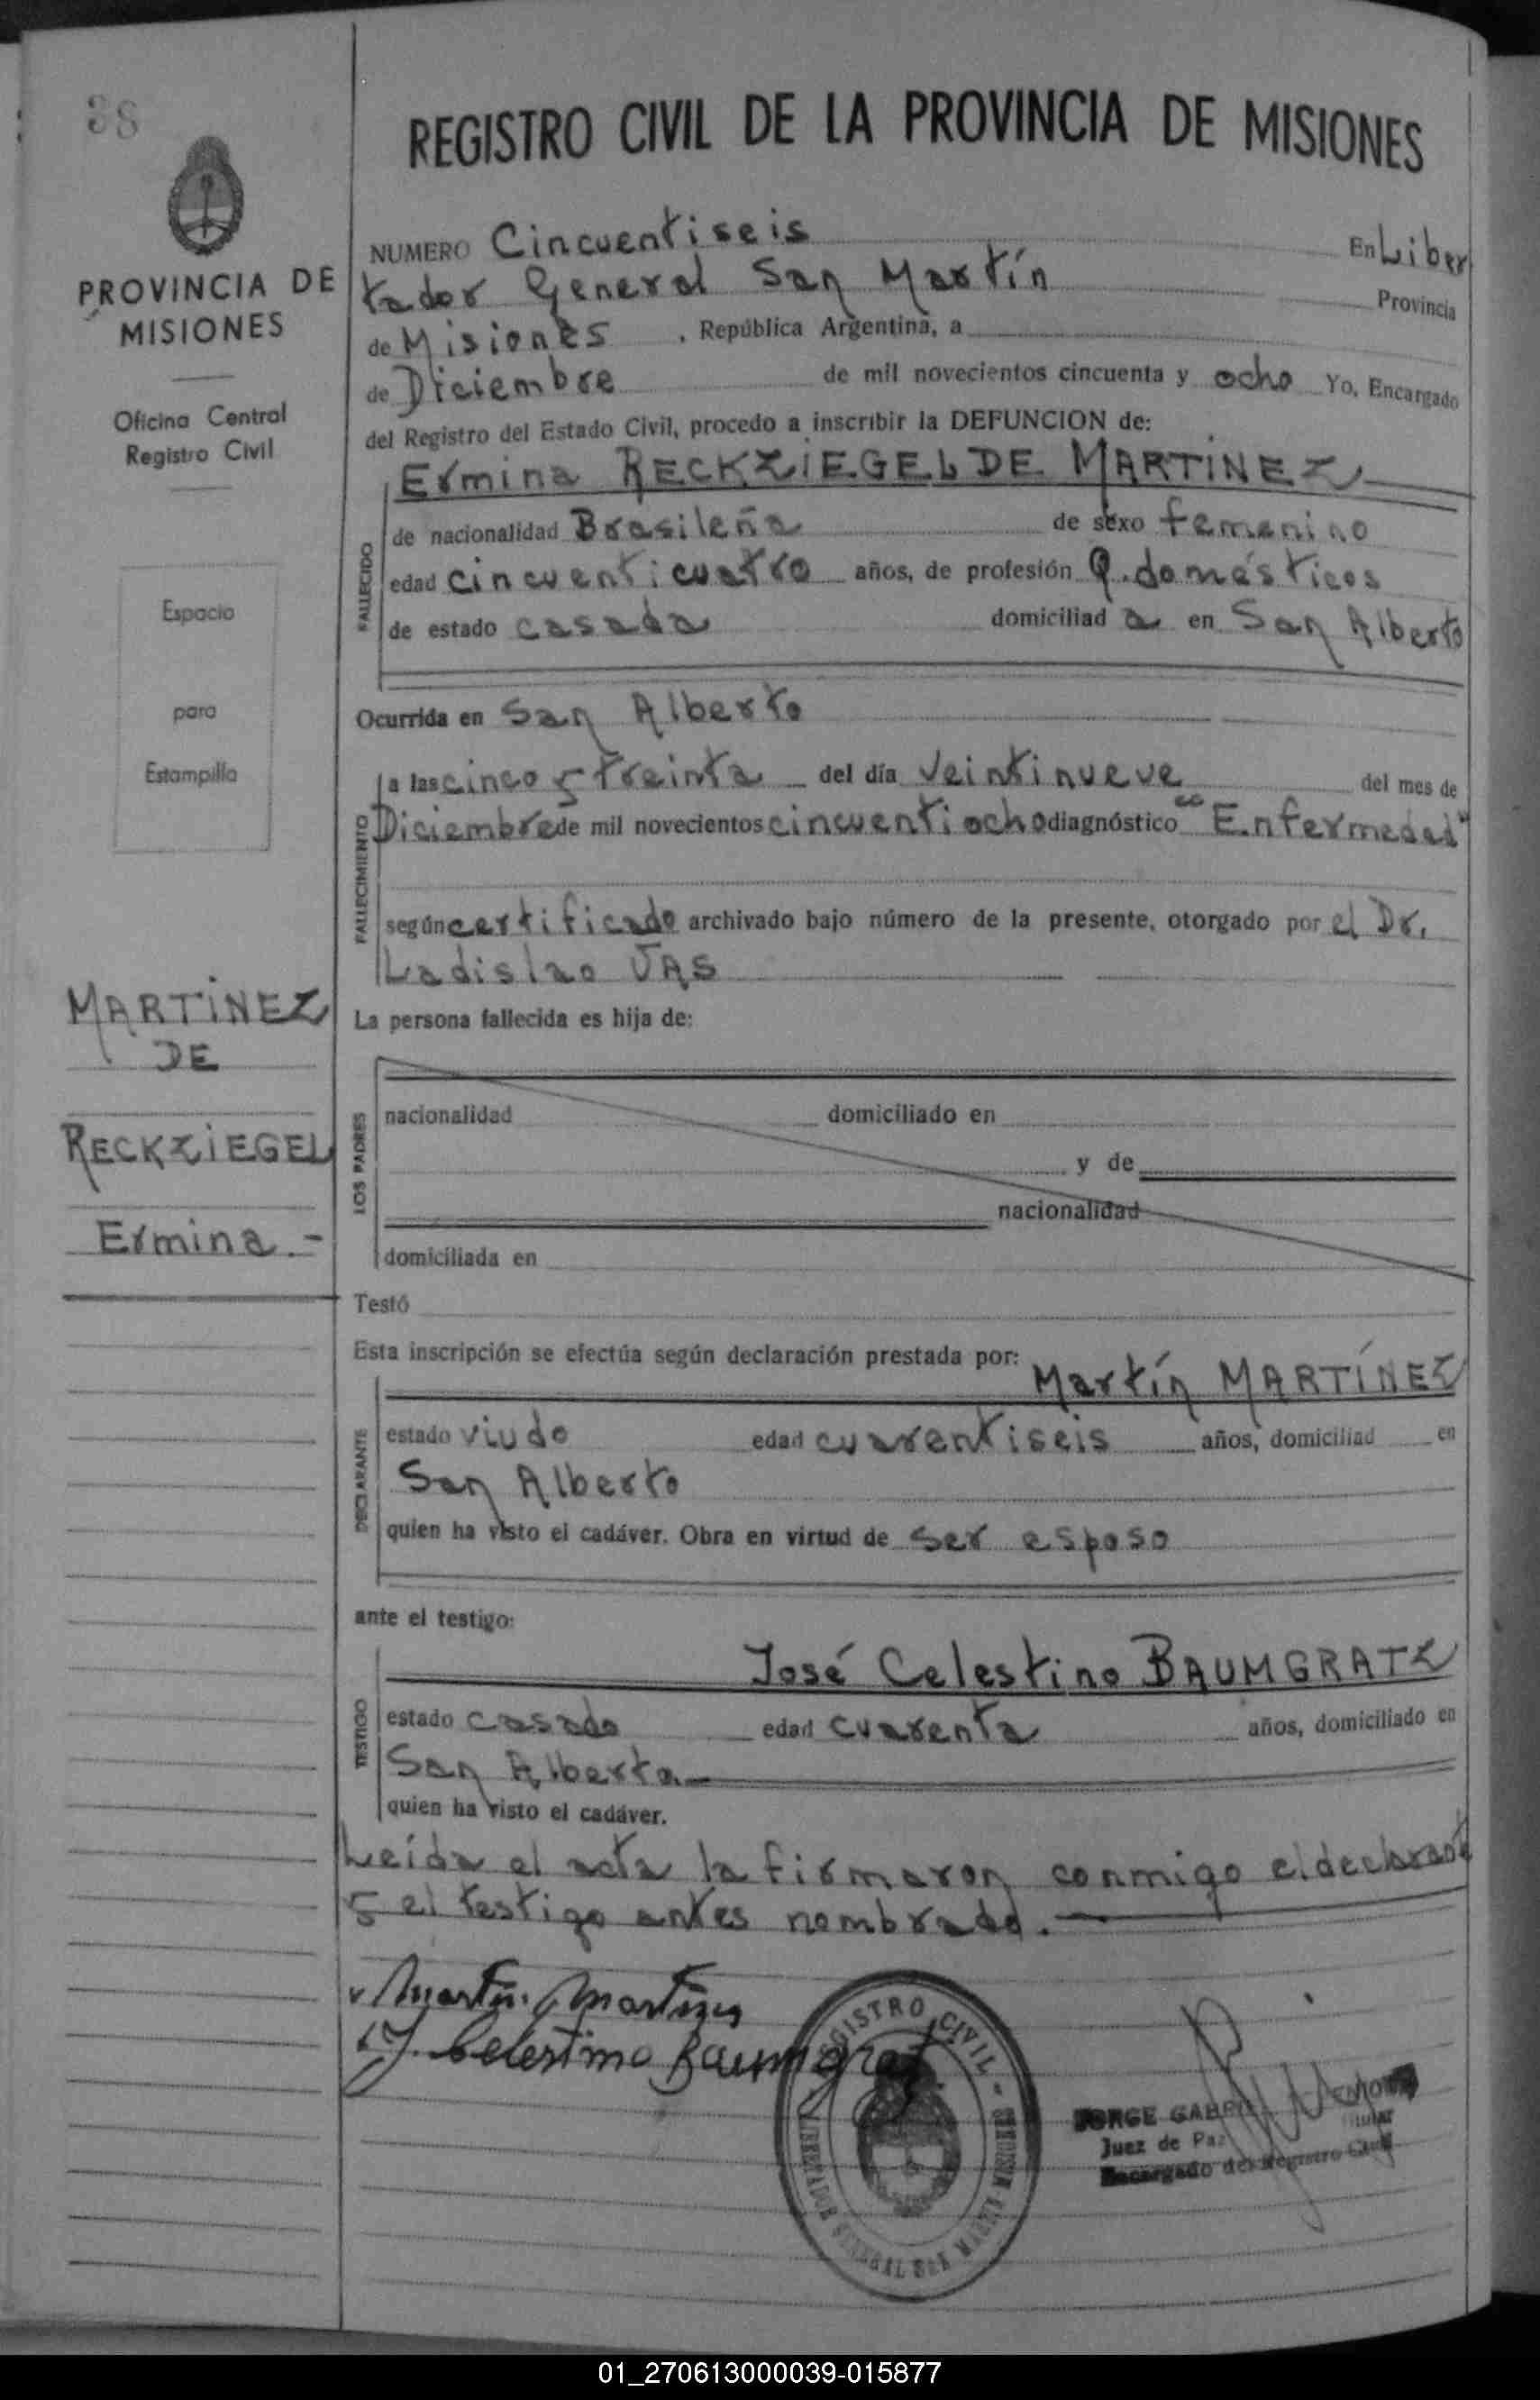 38
PROVINCIA DE
MISIONES
Oficina Central
Registro Civil
Espacio
para
Estampilla
MARTINEZ
DE
RECKZIEGEL
Ermina.-
REGISTRO CIVIL DE LA PROVINCIA DE MISIONES
NUMERO Cincuentiseis En Liber
tador General San Martín Provincia
de Misiones, República Argentina, a
de Diciembre de mil novecientos cincuenta y ocho Yo, Encargado
del Registro del Estado Civil, procedo a inscribir la DEFUNCION de:
Ermina RECKZIEGEL DE MARTINEZ
FALLECIDO
de nacionalidad Brasileña de sexo femenino
edad cincuenticuatro años, de profesión Q. domésticos
de estado casada domiciliad a en San Alberto
Ocurrida en San Alberto
FALLECIMIENTO
a las cinco y treinta del día veintinueve del mes de
Diciembre de mil novecientos cincuentiocho diagnóstico "Enfermedad"
según certificado archivado bajo número de la presente, otorgado por el Dr.
Ladislao VAS
La persona fallecida es hija de:
LOS PADRES
nacionalidad domiciliado en
y de
nacionalidad
domiciliada en
Testó
Esta inscripción se efectúa según declaración prestada por:
Martín MARTÍNEZ
DECLARANTE
estado viudo edad cuarentiseis años, domiciliad en
San Alberto
quien ha visto el cadáver. Obra en virtud de ser esposo
ante el testigo:
José Celestino BAUMGRATZ
TESTIGO
estado casado edad cuarenta años, domiciliado en
San Alberto
quien ha visto el cadáver.
Leída el acta la firmaron conmigo el declarante
y el testigo antes nombrado.
Martin Martinez
J. Celestino Baumgratz
REGISTRO CIVIL
LIBERTADOR GENERAL SAN MARTIN
JORGE GABRIEL
Titular
Juez de Paz
Encargado del Registro Civil
01_270613000039-015877